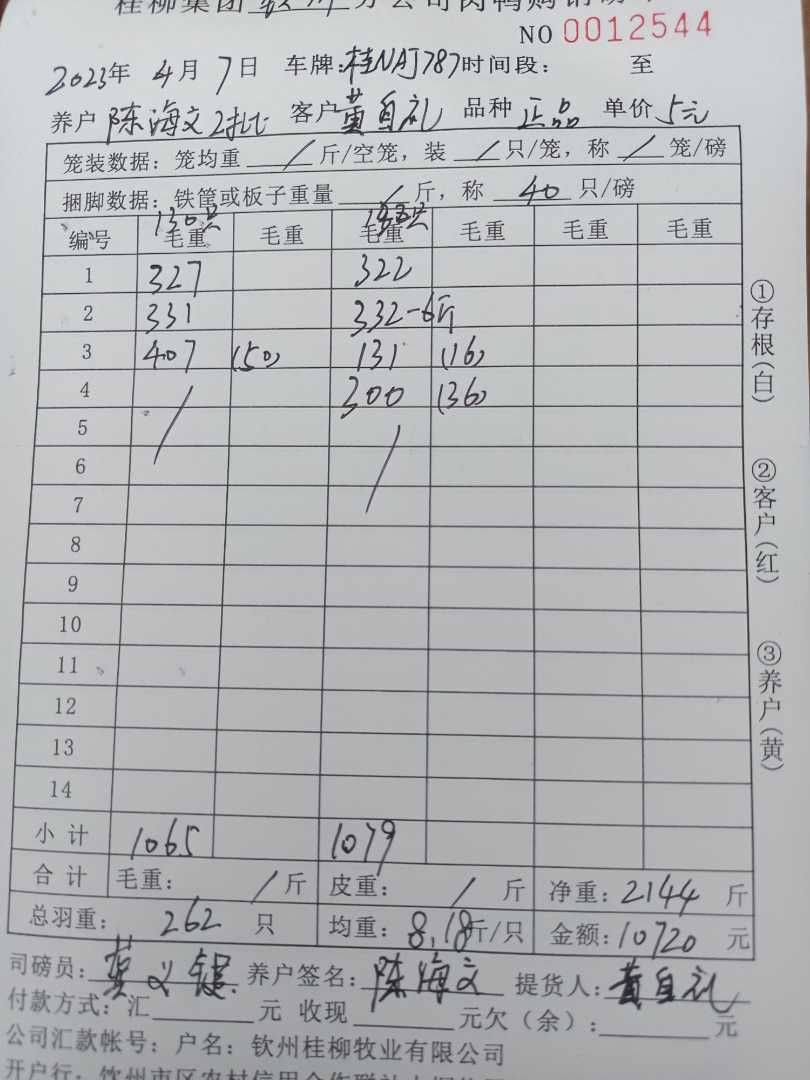 桂柳集团 钦州 分公司肉鸭购销磅单
NO 0012544
2023年 4月 7日 车牌:桂NAJ787 时间段: 至
养户 陈海文2批 客户 黄自礼 品种 正品 单价 5元
笼装数据:笼均重 / 斤/空笼,装 / 只/笼,称 / 笼/磅
捆脚数据:铁筐或板子重量 / 斤,称 40 只/磅
130只
编号 毛重 毛重 毛重 毛重 毛重 毛重
1 327 322
2 331 332-6斤
3 407 (50) 131 (16)
4 / 300 (36)
5 /
6
7
8
9
10
11
12
13
14
小计 1065 1079
合计 毛重: / 斤 皮重: / 斤 净重:2144 斤
总羽重: 262 只 均重:8.18斤/只 金额:10720 元
司磅员: 养户签名:陈海文 提货人:黄自礼
付款方式:汇 元 收现 元欠(余): 元
公司汇款帐号:户名:钦州桂柳牧业有限公司
开户行:钦州市区农村信用合作联社
①存根(白)
②客户(红)
③养户(黄)